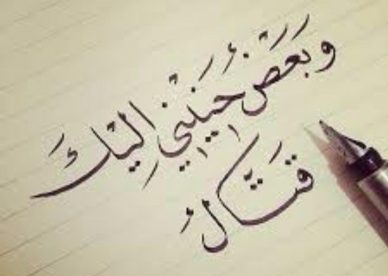 وَبَعَضُ حَنِيْنِيِ إِليْكَ
قَتَّالُ